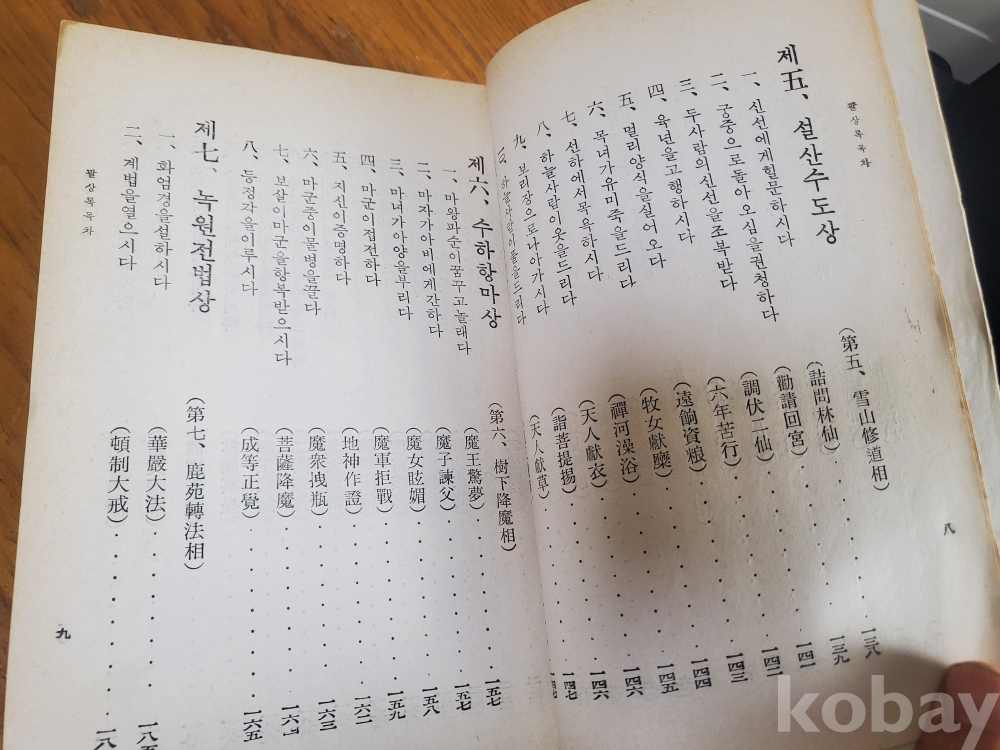 팔상록목차
제五、설산수도상 (第五、雪山修道相)……一三八
一、신선에게힐문하시다 (詰問林仙)……一三九
二、궁중으로돌아오심을권청하다 (勸請回宮)……一四一
三、두사람의신선을조복받다 (調伏二仙)……一四二
四、육년을고행하시다 (六年苦行)……一四三
五、멀리양식을실어오다 (遠餉資粮)……一四四
六、목녀가유미죽을드리다 (牧女獻麋)……一四五
七、선하에서목욕하시다 (禪河澡浴)……一四六
八、하늘사람이옷을드리다 (天人獻衣)……一四六
九、보리장으로나아가시다 (詣菩提場)……一四七
十、하늘사람이풀을드리다 (天人獻草)……一四七
八
제六、수하항마상 (第六、樹下降魔相)
一、마왕파순이꿈꾸고놀래다 (魔王驚夢)……一五七
二、마자가아비에게간하다 (魔子諫父)……一五七
三、마녀가아양을부리다 (魔女眩媚)……一五八
四、마군이접전하다 (魔軍拒戰)……一五九
五、지신이증명하다 (地神作證)……一六二
六、마군중이물병을끌다 (魔衆拽瓶)……一六三
七、보살이마군을항복받으시다 (菩薩降魔)……一六四
八、등정각을이루시다 (成等正覺)……一六五
제七、녹원전법상 (第七、鹿苑轉法相)
一、화엄경을설하시다 (華嚴大法)……一八五
二、계법을열으시다 (頓制大戒)……一八
팔상록목차
九
kobay